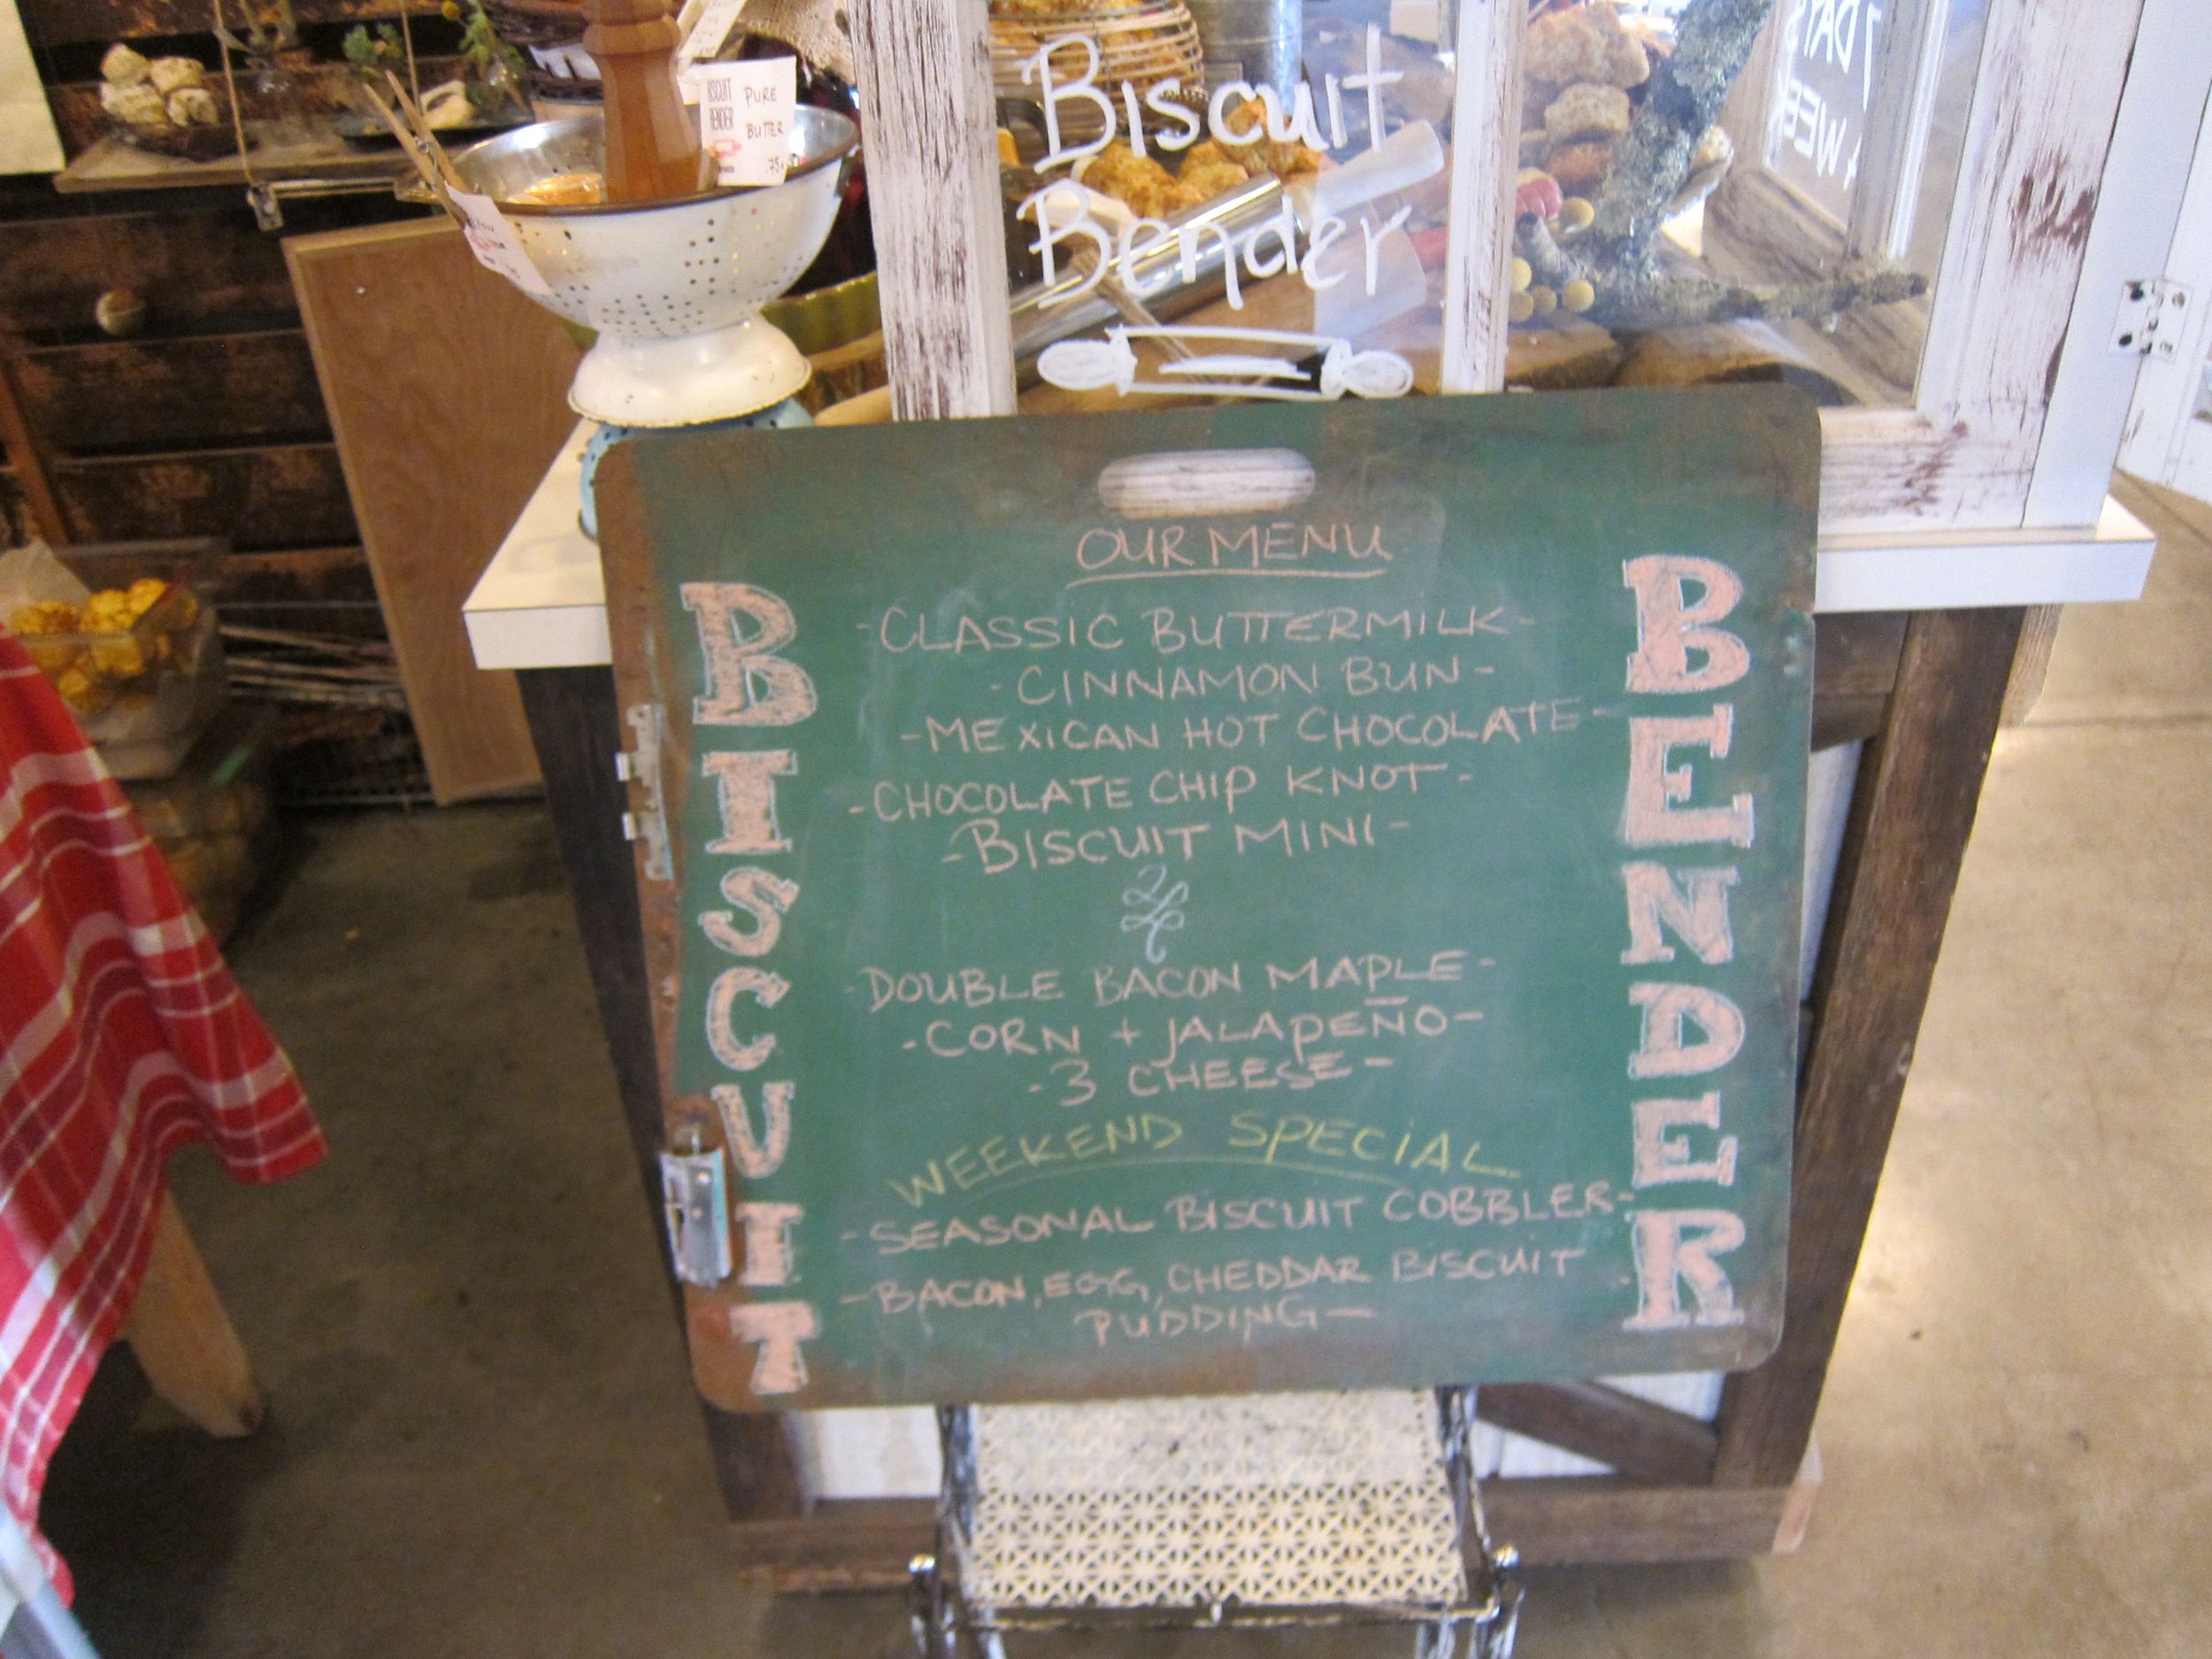 BISCUIT
BENDER
PURE
BUTTER
Biscuit
Bender
7 DAYS
WEEK
OUR MENU
-CLASSIC BUTTERMILK-
-CINNAMON BUN-
-MEXICAN HOT CHOCOLATE-
-CHOCOLATE CHIP KNOT-
-BISCUIT MINI-
-DOUBLE BACON MAPLE-
-CORN + JALAPEÑO-
-3 CHEESE-
WEEKEND SPECIAL
-SEASONAL BISCUIT COBBLER-
-BACON, EGG, CHEDDAR BISCUIT
PUDDING-
BISCUIT
BENDER